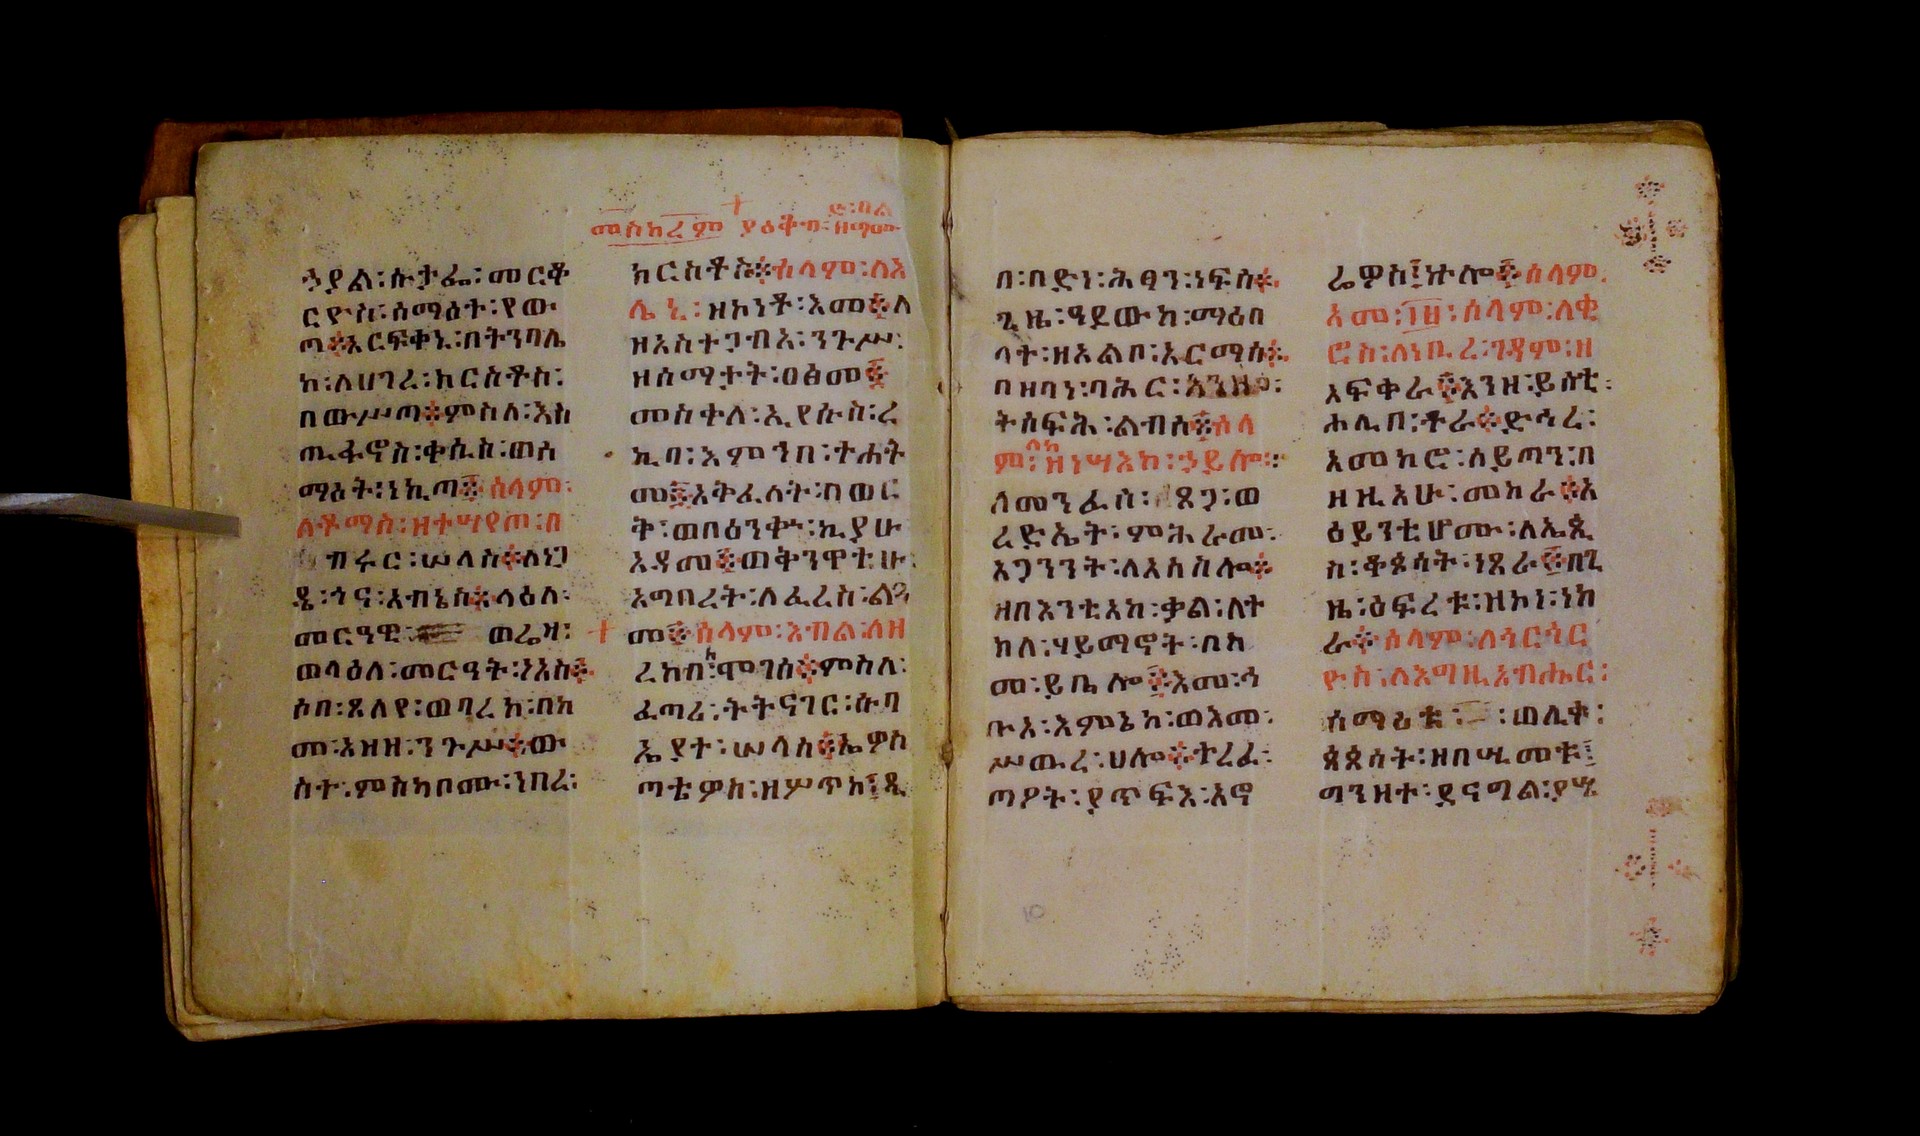 መስከረም ያዕቆብ
ኃያል፡ሱታፌ፡መርቆ
ርዮስ፡ሰማዕት፡የው
ጣ፨እርፍቀኒ፡በትንባሌ
ከ፡ለሀገረ፡ክርስቶስ፡
በውሥጣ፨ምስለ፡እስ
ጢፋኖስ፡ቀሲስ፡ወሰ
ማዕት፡ኒኪጣ፨ሰላም፡
ለቶማስ፡ዘተሣየጦ፡በ
ብሩር፡ሠላስ፨ለነጋ
ዴ፡ጎና፡አብኔስ፨ላዕለ፡
መርዓዊ፡ ወሬዛ፡
ወላዕለ፡መርዓት፡ንእስ፨
ሶበ፡ጸለየ፡ወባረከ፡በከ
መ፡አዘዘ፡ንጉሥ፨ው
ስተ፡ምስካቦሙ፡ነበረ፡
ክርስቶስ፨ሰላም፡ለእ
ሌኒ፡ዘኮነቶ፡እመ፨ለ
ዘአስተጋብአ፡ንጉሥ፡
ዘሰማታት፡ዐፅመ፨
መስቀለ፡ኢየሱስ፡ረ
ኪባ፡እምኀበ፡ተሐት
መ፨አትፈለት፡በወር
ቅ፡ወበዕንቍ፡ኪያሁ
አዳመ፨ወቅንዋቲሁ፡
አጣበረት፡ለፈረስ፡ልጓ
መ፨ሰላም፡እብል፡ለዘ
ረከበ፡ሞገሰ፨ምስለ፡
ፈጣሪ፡ትትናገር፡ሱባ
ኤያተ፡ሠላስ፨ኤዎስ
ጣቴዎስ፡ዘሦጥከ፤ጺ
በ፡በድነ፡ሕፃን፡ነፍስ፨
ጊዜ፡ዓይውከ፡ማዕበ
ላት፡ዘአልቦ፡አርማስ፨
በዘባነ፡ባሕር፡
ትሰፍሕ፡ልብሰ፨ሰላ
ም፡ዘነሣእከ፡ኃይሎ፨
ለመንፈስ፡ ጸጋ፡ወ
ረድኤት፡ምሕራመ፡
አጋንንት፡ለአስስሎ፨
ዘበእንቲአከ፡ቃል፡ለት
ክለ፡ሃይማኖት፡በአ
መ፡ይቤሎ፨እመ፡ኅ
ቡእ፡እምኔከ፡ወእመ፡
ሥጡረ፡ሀሎ፨ተረፈ፡
ጣዖት፡ያጥፍእ፡አኖ
ሬዎስ፤ኵሎ፨ሰላም፡
እመ፡፲ወ፰፡ሰላም፡ለቂ
ሮስ፡ለነቢረ፡ገዳም፡ዘ
አፍቀራ፨እንዘ፡ይሰቲ፡
ሐሊበ፡ቶራ፨ድኅረ፡
አመከሮ፡ሰይጣን፡በ
ዘዚአሁ፡መከራ፨አ
ዕይንቲሆሙ፡ለኤጲ
ስ፡ቆጶሳት፡ነጸራ፨በጊ
ዜ፡ዕፍረቱ፡ዝኮነ፡ነከ
ራ፨ሰላም፡ለጎርጎር
ዮስ፡ለእግዚአብሔር፡
ሰማዕቱ፡ ፡ወሊቀ፡
ጳጳሳት፡ዘበሢመቱ፤
ማንዘተ፡ይናግል፡ያሤ